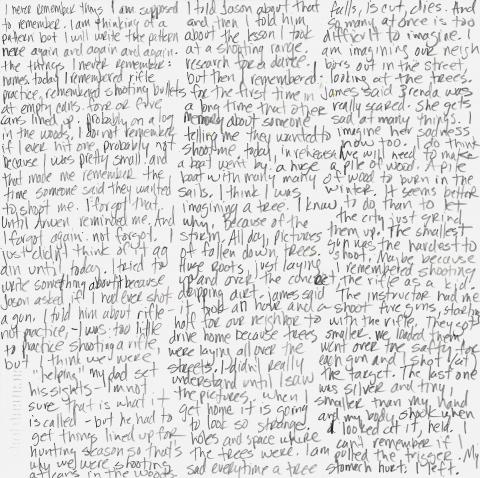 I never remember things I am supposed
to remember. I am thinking of a
pattern but I will write the pattern
here again and again and again.
the things I never remember:
names. today I remembered rifle
practice, remembered shooting bullets
at empty cans. four or five
cans lined up. probably on a log
in the woods. I do not remember
if I ever hit one, probably not
because I was pretty small. and
that made me remember the
time someone said they wanted
to shoot me. I forgot that
until Anwen reminded me. And
I forgot again. not forgot. I
just didn't think of it ag
ain until today. I tried to
write something about it because
Jason asked if I had ever shot
a gun. I told him about rifle
practice, - I was too little
to practice shooting a rifle,
but I think we were
"helping" my dad set
his sights - I'm not
sure that is what it
is called - but he had to
get things lined up for
hunting season so that's
why we were shooting
at cans in the woods.
I told Jason about that
and then I told him
about the lesson I took
at a shooting range.
research for a dance.
but then I remembered
for the first time in
a long time that other
memory about someone
telling me they wanted to
shoot me. today, in rehearsal
a boat went by. a huge
boat with many many
sails. I think I was
imagining a tree. I know
why, because of the
storm. All day, pictures
of fallen down trees.
Huge roots, just laying
up and over the concret
dripping dirt. James said
it took an hour and a
half for our neighbor to
drive home because trees
were laying all over the
streets. I didn't really
understand until I saw
the pictures. when I
get home it is going
to look so strange.
holes and space where
the trees were. I am
sad everytime a tree
falls, is cut, dies. And
so many at once is too
difficult to imagine. I
am imagining our neigh
bors out in the street,
looking at the trees.
James said Brenda was
really scared. She gets
sad at many things. I
imagine her sadness
now too. I do think
we will need to make
a pile of wood. A pile
of wood to burn in the
winter. It seems better
to do than to let
the city just grind
them up. The smallest
gun was the hardest to
shoot. Maybe because
I remembered shooting
the rifle as a kid.
The instructor had me
shoot five guns, starting
with the rifle. They got
smaller. we loaded them
went over the safty for
each gun and I shot at
the target. The last one
was silver and tiny,
smaller than my hand
and my body shook when
I looked at it, held. I
can't remember if I
pulled the trigger. My
stomach hurt. I left.